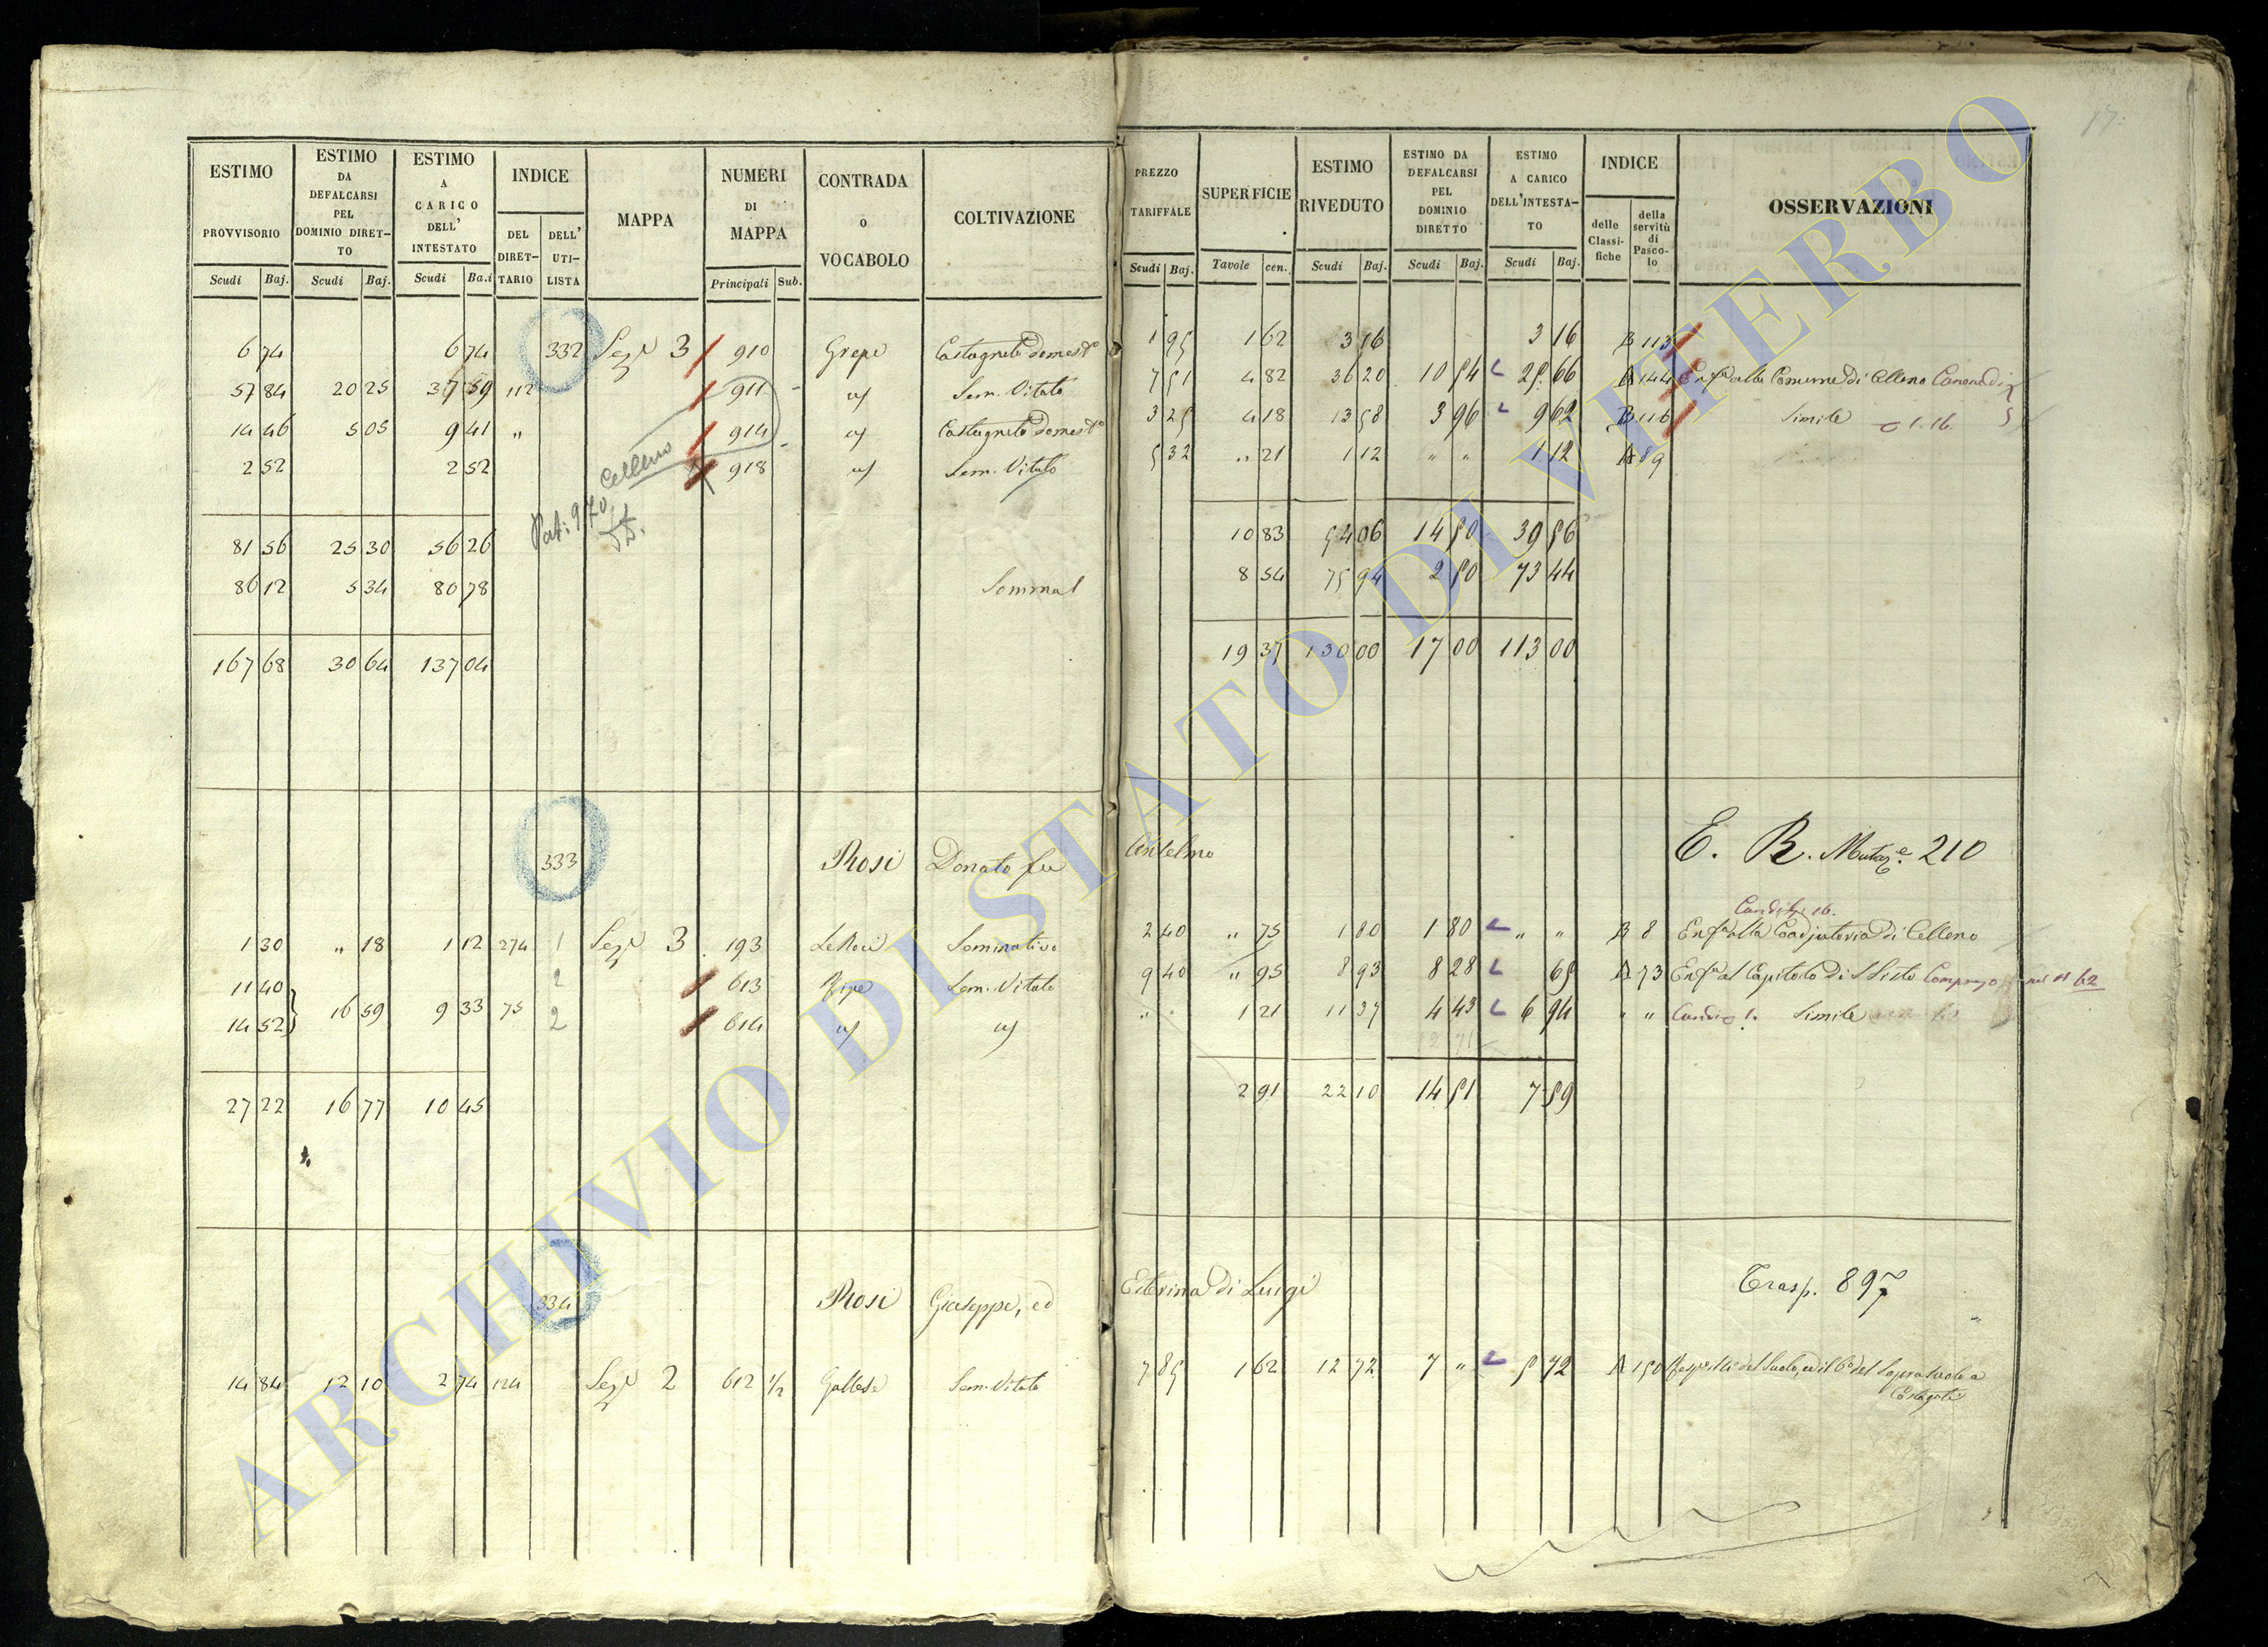 17
ESTIMO PROVVISORIO Scudi Baj.
ESTIMO DA DEFALCARSI PEL DOMINIO DIRETTO Scudi Baj.
ESTIMO A CARICO DELL' INTESTATO Scudi Ba.i
INDICE DEL DIRETTARIO DELL' UTILISTA
MAPPA
NUMERI DI MAPPA Principali Sub.
CONTRADA o VOCABOLO
COLTIVAZIONE
PREZZO TARIFFALE Scudi Baj.
SUPERFICIE Tavole cen.
ESTIMO RIVEDUTO Scudi Baj.
ESTIMO DA DEFALCARSI PEL DOMINIO DIRETTO Scudi Baj.
ESTIMO A CARICO DELL'INTESTATO Scudi Baj.
INDICE delle Classifiche della servitù di Pascolo
OSSERVAZIONI
6 74 6 74 332 Sez.e 3 910 Grepe Castagneto domest.o 1 95 1 62 3 16 3 16 B 113
57 84 20 25 37 59 112 911 id Sem. Vitato 7 51 4 82 36 20 10 54 25 66 A 144 Enf.a alla Comune di Celleno
14 46 5 05 9 41 " 914 id Castagneto domest.o 3 25 4 18 13 58 3 96 9 62 B 116 Simile 1. 16.
2 52 2 52 918 id Sem. Vitato 5 32 " 21 1 12 " " 1 12 A 89
Celleno
81 56 25 30 56 26 10 83 54 06 14 50 39 56
86 12 5 34 80 78 Somma 8 54 75 94 2 50 73 44
167 68 30 64 137 04 19 37 130 00 17 00 113 00
333 Rosi Donato fu Anselmo E. R. Mutaz.e 210
1 30 " 18 1 12 274 1 Sez.e 3 193 Seminativo 2 40 " 75 1 80 1 80 " " B 8 Enf.a alla Coadjutoria di Celleno
11 40 2 613 Ripe Sem. Vitato 9 40 " 95 8 93 8 28 65 A 73 Enf.a al Capitolo di S Sisto
16 59 9 33 75
14 52 2 614 id id " 1 21 11 37 4 43 6 94 " " Simile
27 22 16 77 10 45 2 91 22 10 14 51 7 59
334 Rosi Giuseppe, ed Eterina di Luigi Trasp. 897
14 84 12 10 2 74 124 Sez.e 2 612 1/2 Gallese Sem. Vitato 7 85 1 62 12 72 7 " 5 72 A 150 del Suolo, ed il 6o del Soprasuolo a
ARCHIVIO DI STATO DI VITERBO